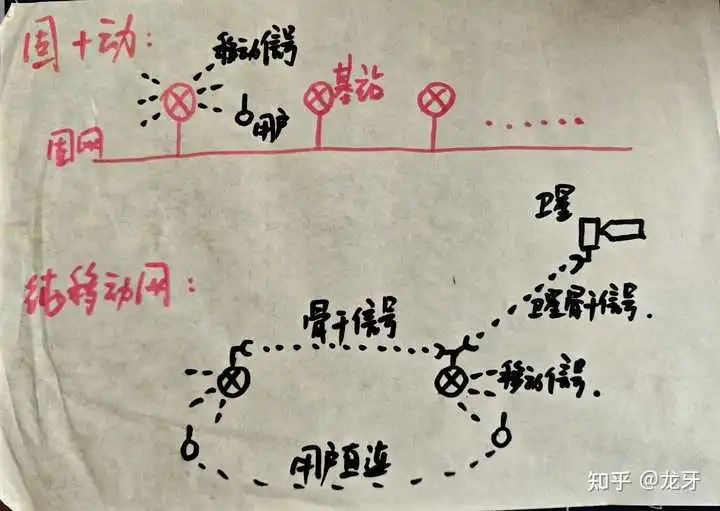 固+动：
移动信号
基站
用户
固网
......
卫星
纯移动网：
骨干信号
卫星骨干信号.
移动信号.
用户直连
知乎 @龙牙